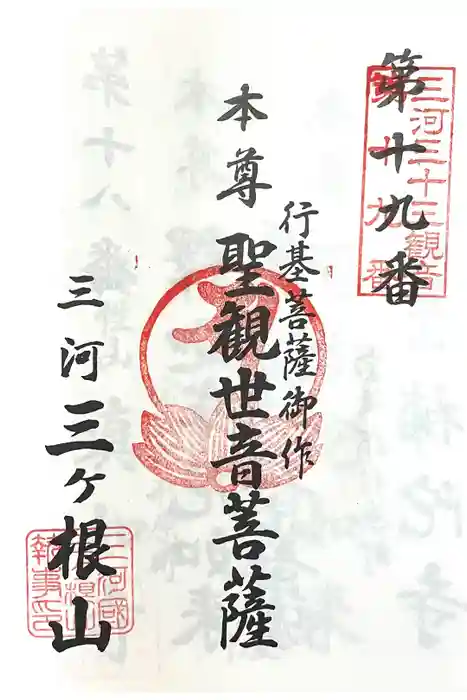 第十九番
三河三十三観音
行基菩薩御作
本尊 聖観世音菩薩
三河 三ヶ根山